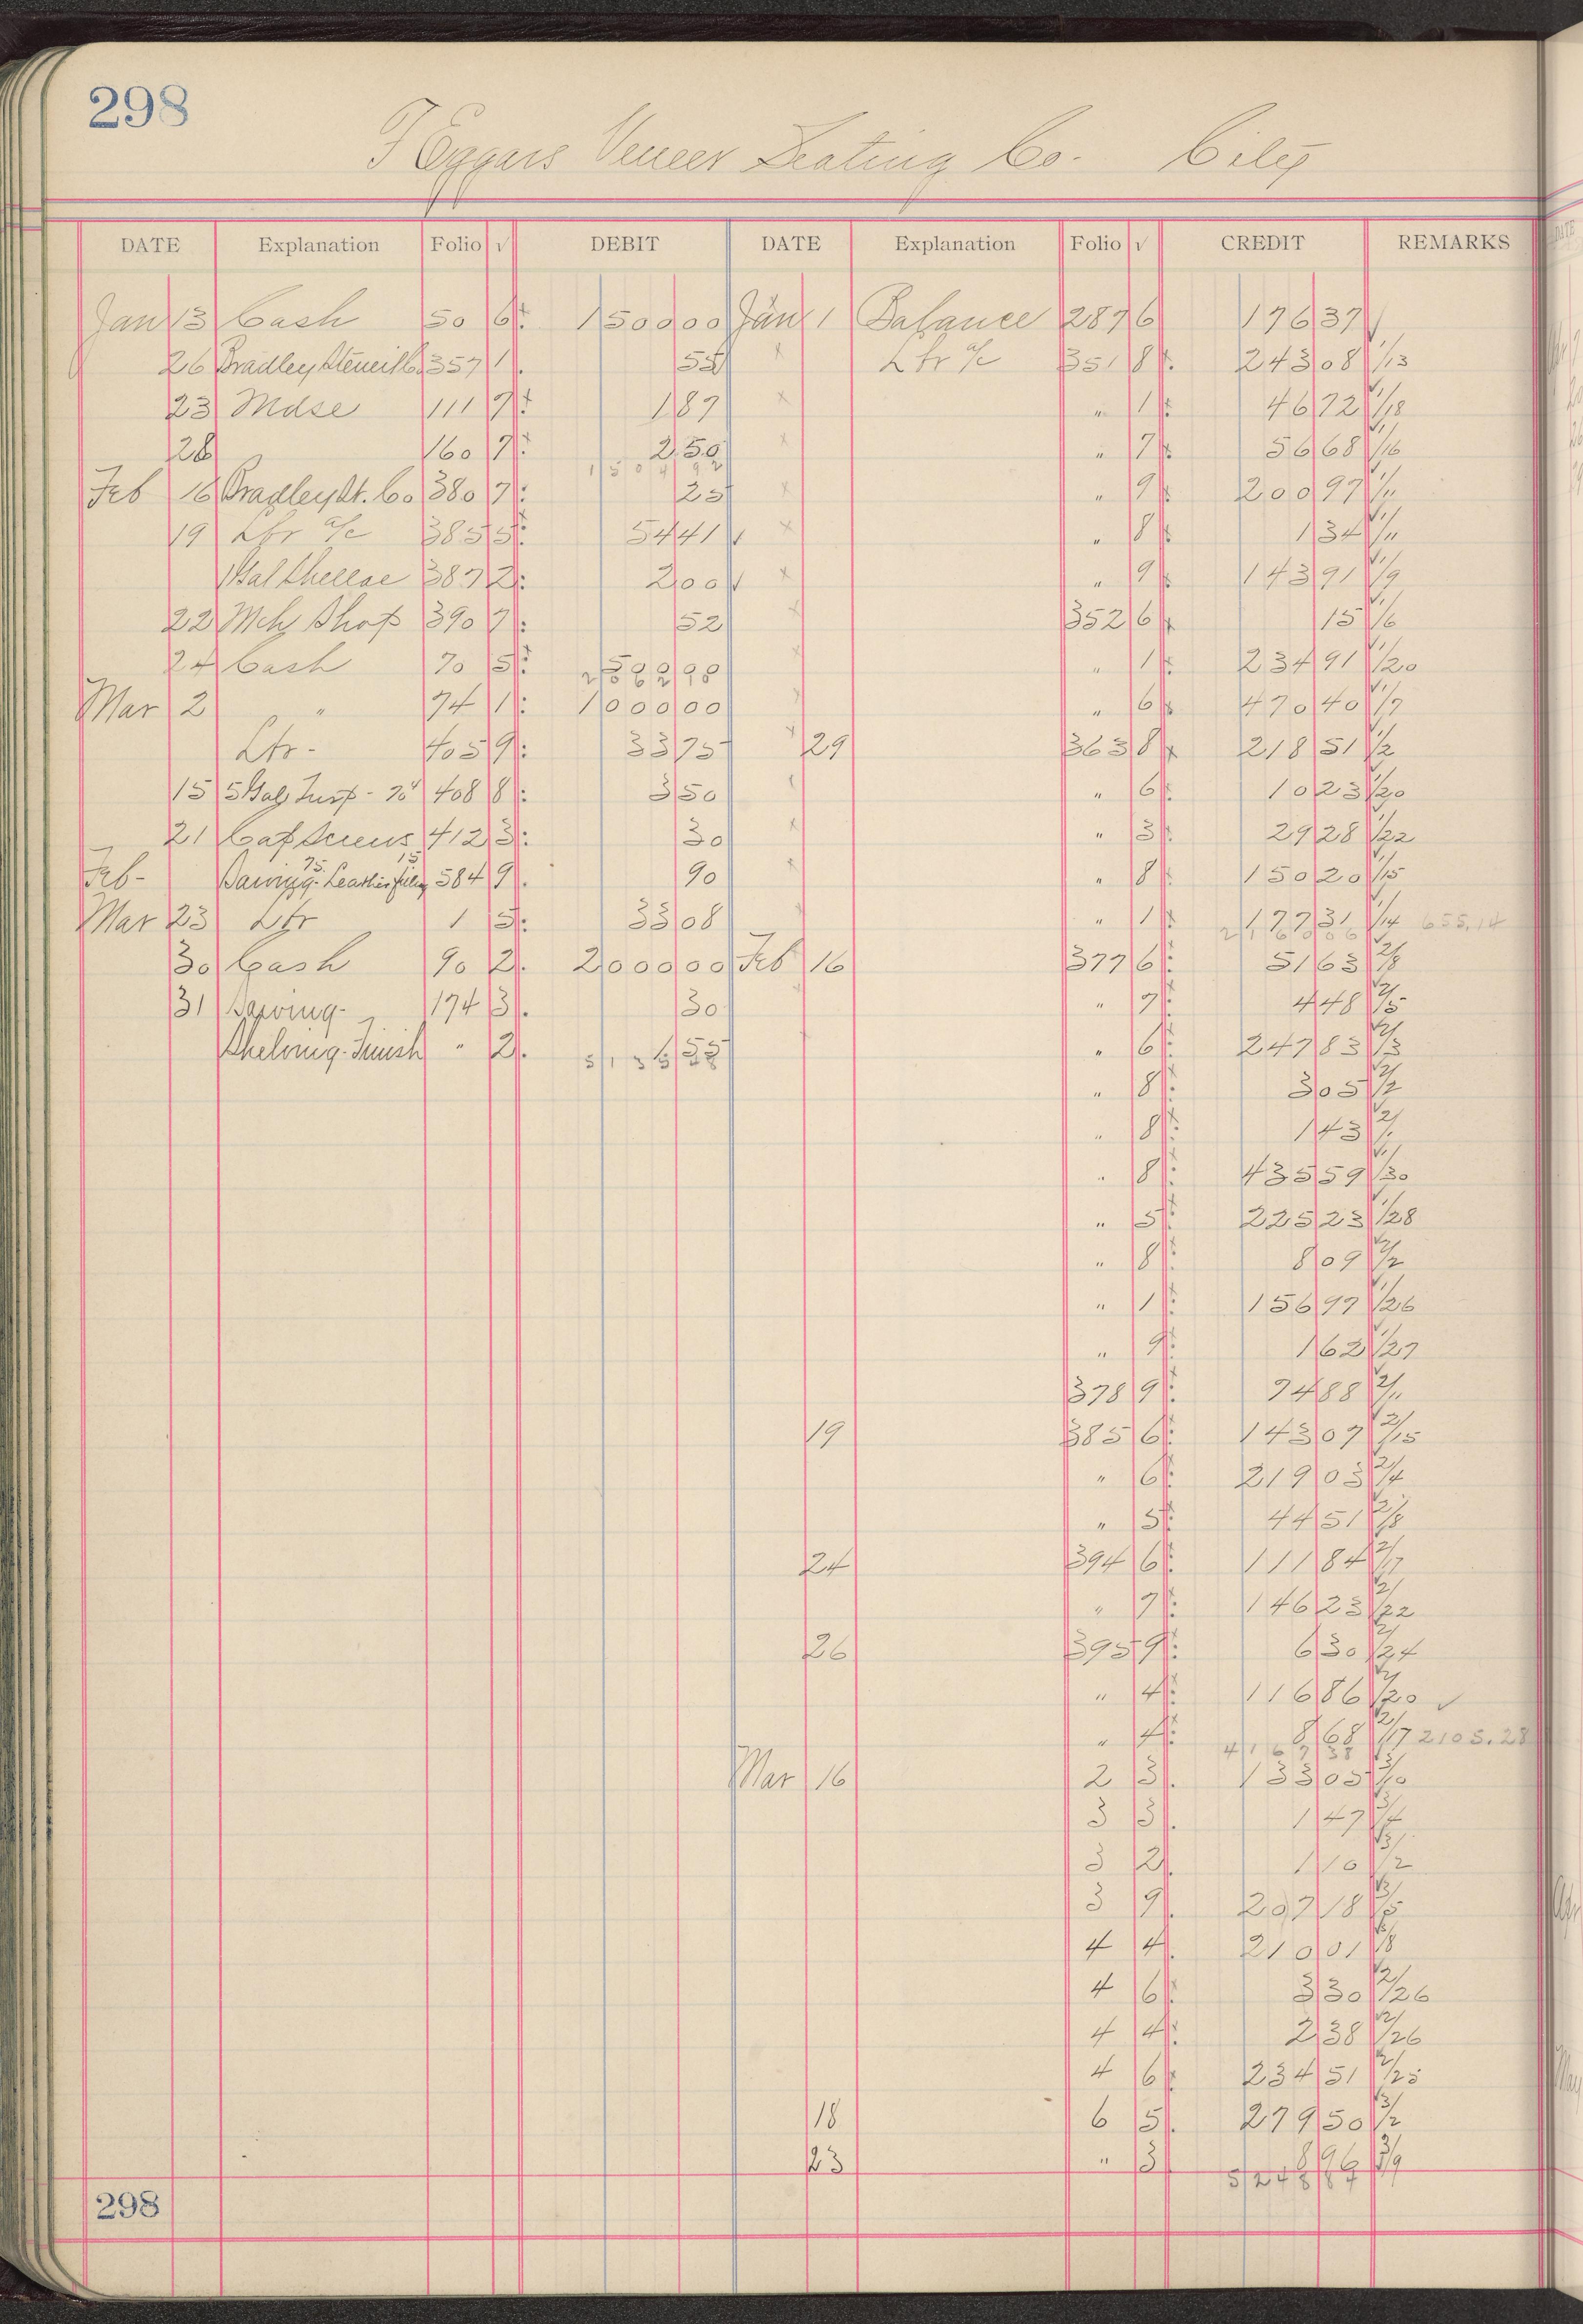 298
Veneer Seating Co. City
DATE Explanation Folio √ DEBIT DATE Explanation Folio √ CREDIT REMARKS
Jan 13 Cash 50 6 1500 00 Jan 1 Balance 287 6 176 37
26 Bradley 357 1 55 Lbr a/c 351 8 243 08 1/13
23 Mdse 111 7 1 87 " 1 46 72 1/18
28 160 7 2 50 " 7 56 68 1/16
1504 92
Feb 16 Bradley St. Co 380 7 25 " 9 200 97 1/11
19 Lbr a/c 385 5 54 41 " 8 1 34 1/11
1 Gal Shellac 387 2 2 00 " 9 143 91 1/9
22 Mch Shop 390 7 52 352 6 15 1/6
24 Cash 70 5 " 1 234 91 1/20
Mar 2 " 74 1 1000 00 " 6 470 40 1/7
Lbr- 405 9 33 75 29 363 8 218 51 1/2
15 5 Gal Turp - 70 408 8 3 50 " 6 10 23 1/20
21 Cap Screws 412 3 30 " 3 29 28 1/22
Feb- 584 9 90 " 8 150 20 1/15
Mar 23 Lbr 1 5 33 08 " 1 177 31 1/14 655.14
30 Cash 90 2 2000 00 Feb 16 377 6 51 63 2/8
31 Sawing- 174 3 30 " 7 4 48 2/5
" 2 " 6 247 83 2/3
" 8 3 05 2/2
" 8 1 43 2/1
" 8 435 59 1/30
" 5 225 23 1/28
" 8 8 09 2/2
" 1 156 97 1/26
" 9 1 62 1/27
378 9 74 88 2/11
19 385 6 143 07 2/15
" 6 219 03 2/4
" 5 44 51 2/18
24 394 6 111 84 2/17
" 7 146 23 2/22
26 395 9 6 30 2/24
" 4 116 86 2/20 ✓
" 4 8 68 2/17 2105.28
4167 38
Mar 16 2 3 133 05 3/10
3 3 1 47 3/4
3 2 1 10 3/2
3 9 207 18 3/5
4 4 210 01 3/8
4 6 3 30 2/26
4 4 2 38 2/26
4 6 234 51 2/25
18 6 5 279 50 3/2
23 " 3 8 96 3/9
298